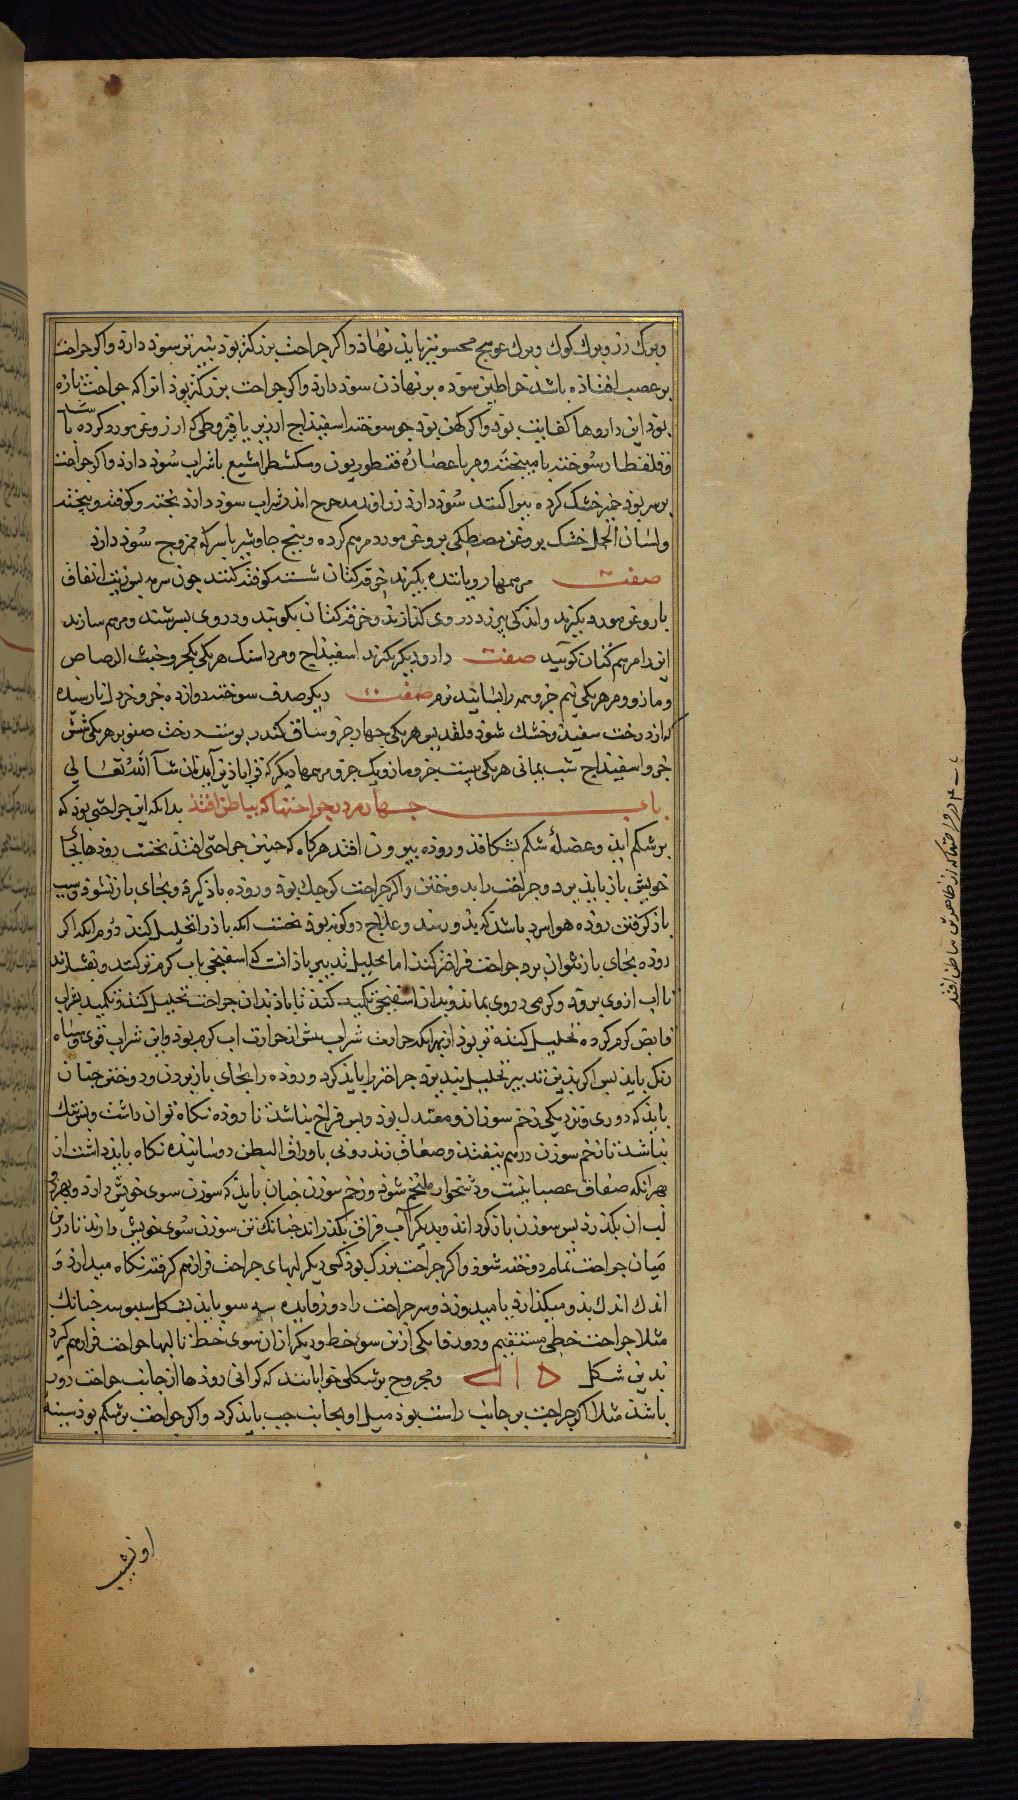 وبرک رز وبرک کوک وبرک عوسج همچنین باید نهاد واکر جراحت بزرکتر بود پنیر تر سود دارد واکر جراحت
بر عصب افتاذه باشد خراطین سوده بر نهاذن سود دارد واکر جراحت بزرکتر بوذ انرا که جراحت تازه
بود این داروها کفایت بود واکر کهن بود جو سوخته اسفیذاج ارزیز با قیروطی که از روغن مورد کرده باشند
وقلقطار سوخته با می پخته ومر با عصاره قنطوریون ومشکطرامشیع با شراب سوذ دارذ واکر جراحت
بر سر بوذ خمیر خشک کرده بپراکنند سوذ دارذ زراوند مدحرج اندر شراب سوذ دارذ پخته وکوفته وپیخته
ولسان الحمل خشک بروغن مصطکی بروغن مورد مرهم کرده وبیخ جاوشیر با سرکه ممزوج سوذ دارذ
صفت مرهمها رویاننده بکیرند خرقه کتان شسته کوفته کنند چون سرمه پس زیت انفاق
یا روغن مورد بکیرند واندکی بیرزد در وی کدازند وخرقه کتان بکوبند ودر وی بسرشند ومرهم سازند
این را مرهم کتان کویند صفت دارو دیکر بکیرند اسفیذاج ومرداسنک هریکی یکجزو خبث الرصاص
ومازو ومر هریکی نیم جزو همه را بسایند نرم صفت دیکر صدف سوخته دوازده جزو خردل نارسیده
که از درخت سفیذ وخشک شوذ وقلقدیس هریکی چهار جزو ساق کندر پوست درخت صنوبر هریکی شش
جزو اسفیذاج شب یمانی هریکی بیست جزو مازو یک جزو مرهمها دیکر که قراباذین آید ان شآ الله تعالی
باب چهارم در جراحتها که بباطن افتذ بدانکه این جراحتی بوذ که
بر شکم آیذ وعضله شکم بشکافذ وروده بیرون افتد هرکاه که چنین جراحتی افتد نخست رودها بجای
خویش باز بایذ برد وجراحت را بدوختن واکر جراحت کوچک بود وروده باذ کیرذ وبجای باز نشود وسبب
باذ کرفتن روده هوا سرد باشد که بدو رسد وعلاج دو کونه بوذ نخست انکه باذ را تحلیل کند دوم انکه اکر
روده بجای باز نتوان برد جراحت فراختر کند اما تحلیل تدبیر باذ آنست که اسفنجی باب کرم تر کنند وبفشارند
تا اب ازوی برود وکرمی در وی بماند وبدان اسفنجی تکمید کنند تا باذ بدان جراحت تحلیل کند وتکمید بشراب
قابض کرم کرده تحلیل کننده تر بوذ از بهر انکه حرارت شراب بیش از حرارت اب کرم بوذ واین شراب قوی وسیاه
رنک بایذ پس اکر بذین تدبیر تحلیل نپذیرد جراحت را بایذ کرد وروده را بجای باز بردن ودوختن چنان
بایذ که دوری ونزدیکی زخم سوزن ومعتدل بوذ وبس فراخ نباشد تا روده نکاه توان داشت وبس تنک
نباشد تا زخم سوزن درهم نیفتد وصفاق اندرونی با مراق البطن دوسانیده نکاه بایذ داشت از
بهر انکه صفاق عصبانیست ودشخوار ملتحم شوذ وزخم سوزن چنان بایذ که سوزن سوی خویش دارد وبهر دو
لب ان بکذرد پس سوزن باز کرداند وبدیکر لب فراق بکذراند چنانک تن سوزن سوی خویش دارند تا در
میان جراحت تمام دوخته شوذ واکر جراحت بزرک بوذ کسی دیکر لبهای جراحت فراز هم کرفته نکاه میدارد و
اندک اندک بذو میکذارد تا میدوزد وسر جراحت را دوزها بده سه سو بایذ بشکل سبوسه چنانک
مثلا جراحت خطی مستقیم ودو رفا یکی ازین سوی خط ودیکر ازان سوی خط تا لبها جراحت فراهم کیرد
بدین شکل ومجروح بر شکلی خوابانند که کرانی رودها از جانب جراحت دور
باشد مثلا اکر جراحت بر جانب راست بوذ میل او بجانب چپ بایذ کرد واکر جراحت بر شکم بوذ سینه
او نشیب
باب ۴ در جراحتها که از ظاهر تن بباطن افتد